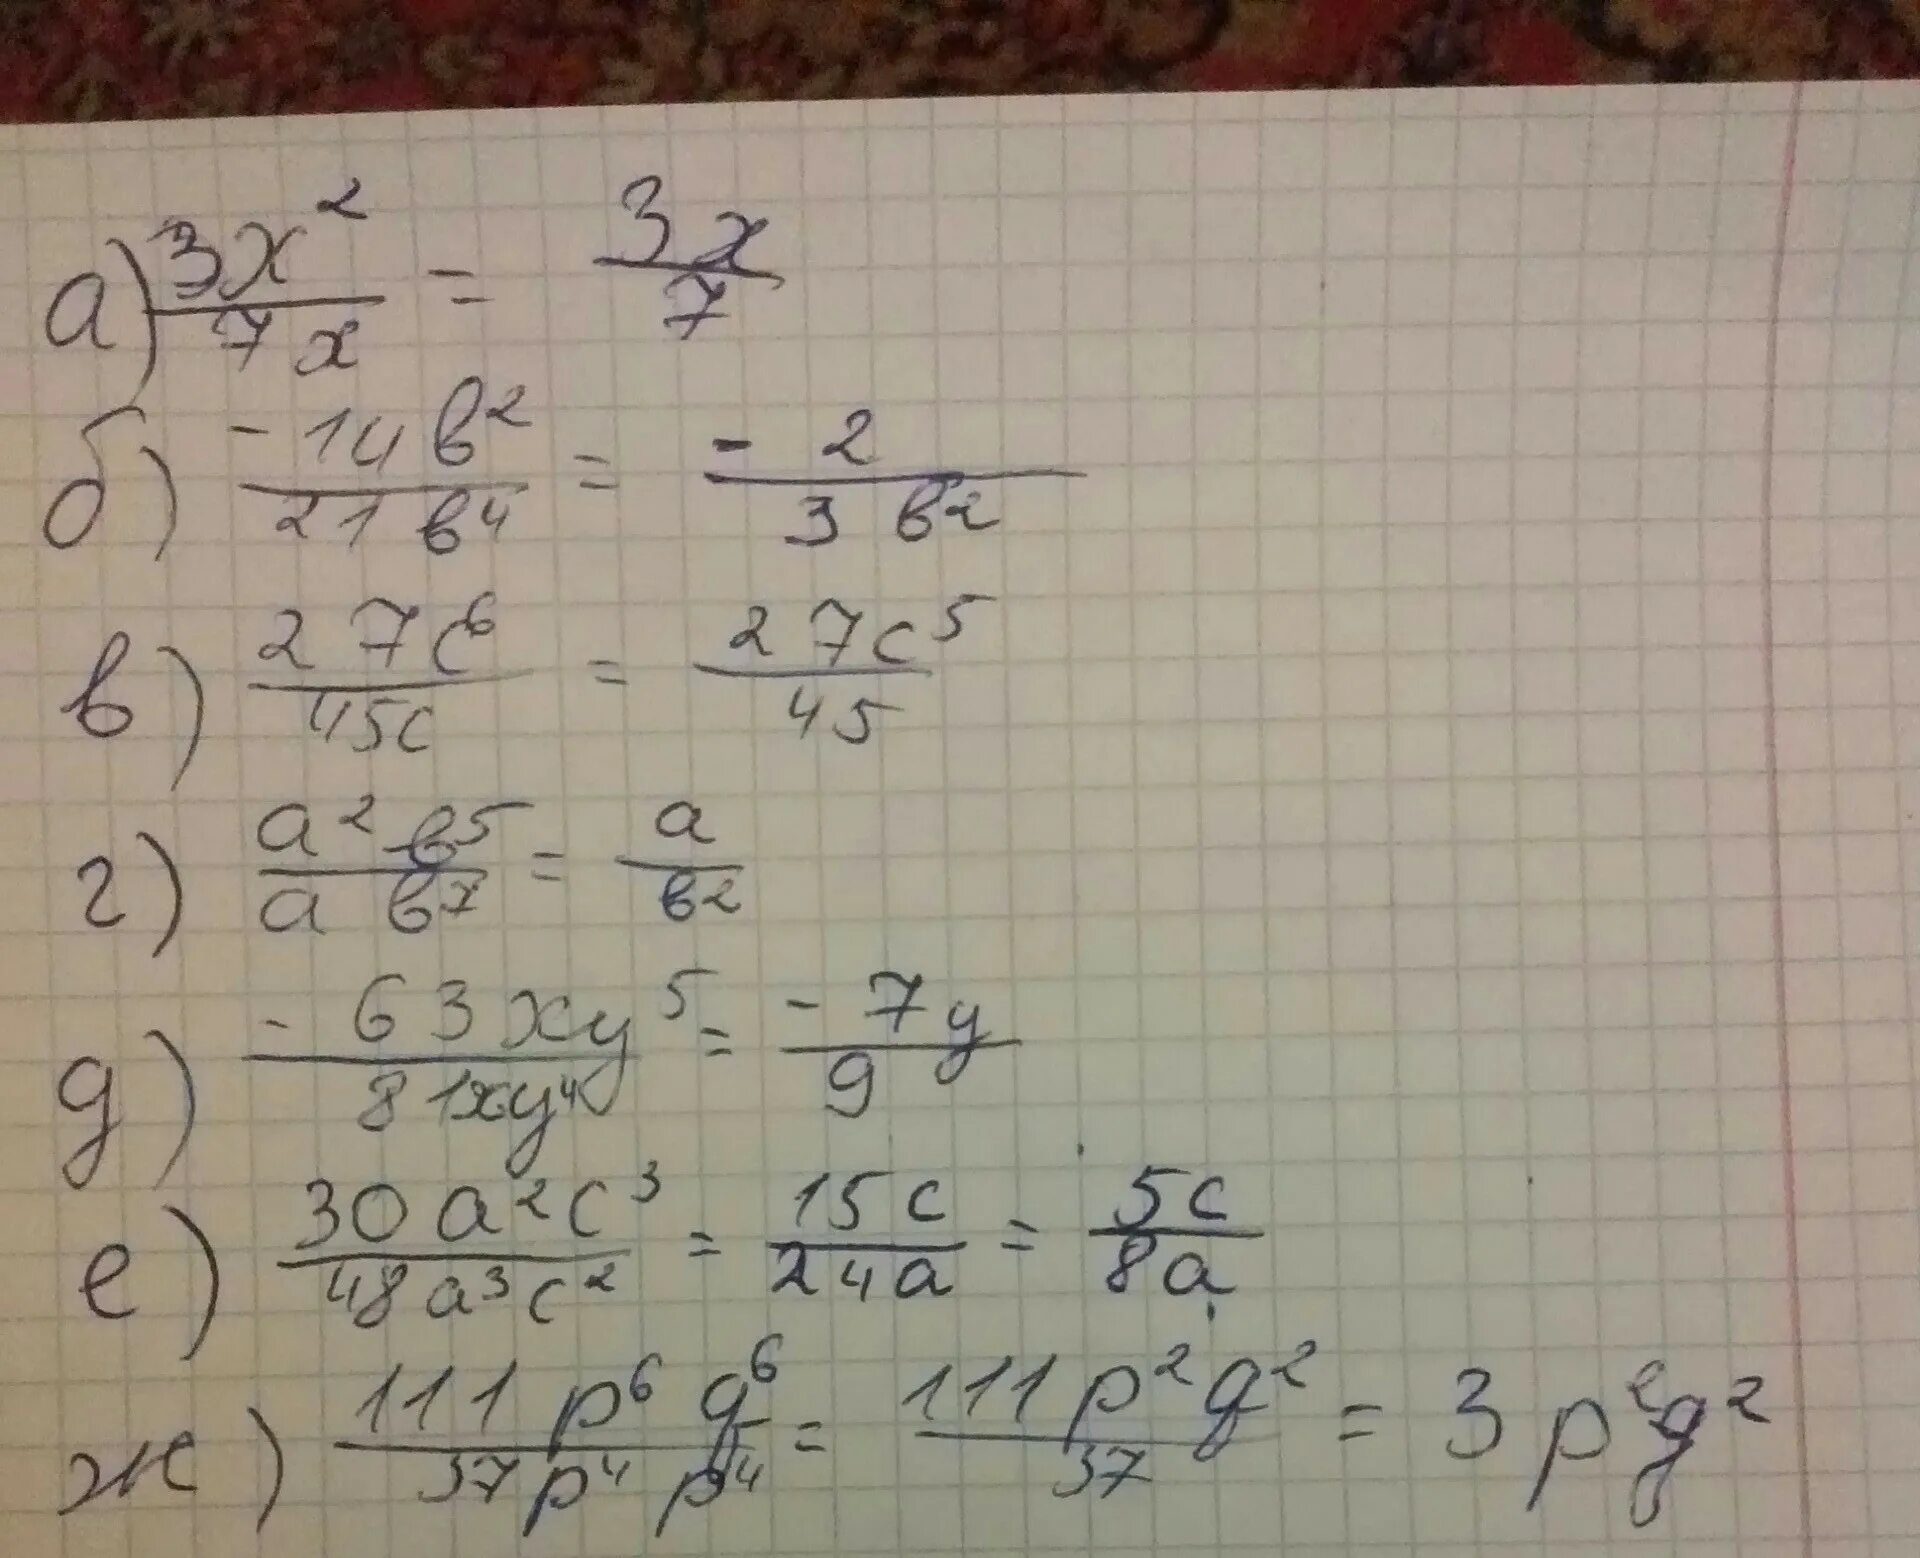 а) 3x²/7x = 3x/7
б) -14b²/21b⁴ = -2/3b²
в) 27c⁶/45c = 27c⁵/45
г) a²b⁵/ab⁷ = a/b²
д) -63xy⁵/81xy⁴ = -7y/9
е) 30a²c³/48a³c² = 15c/24a = 5c/8a
ж) 111p⁶q⁶/37p⁴p⁴ = 111p²q²/37 = 3p²q²